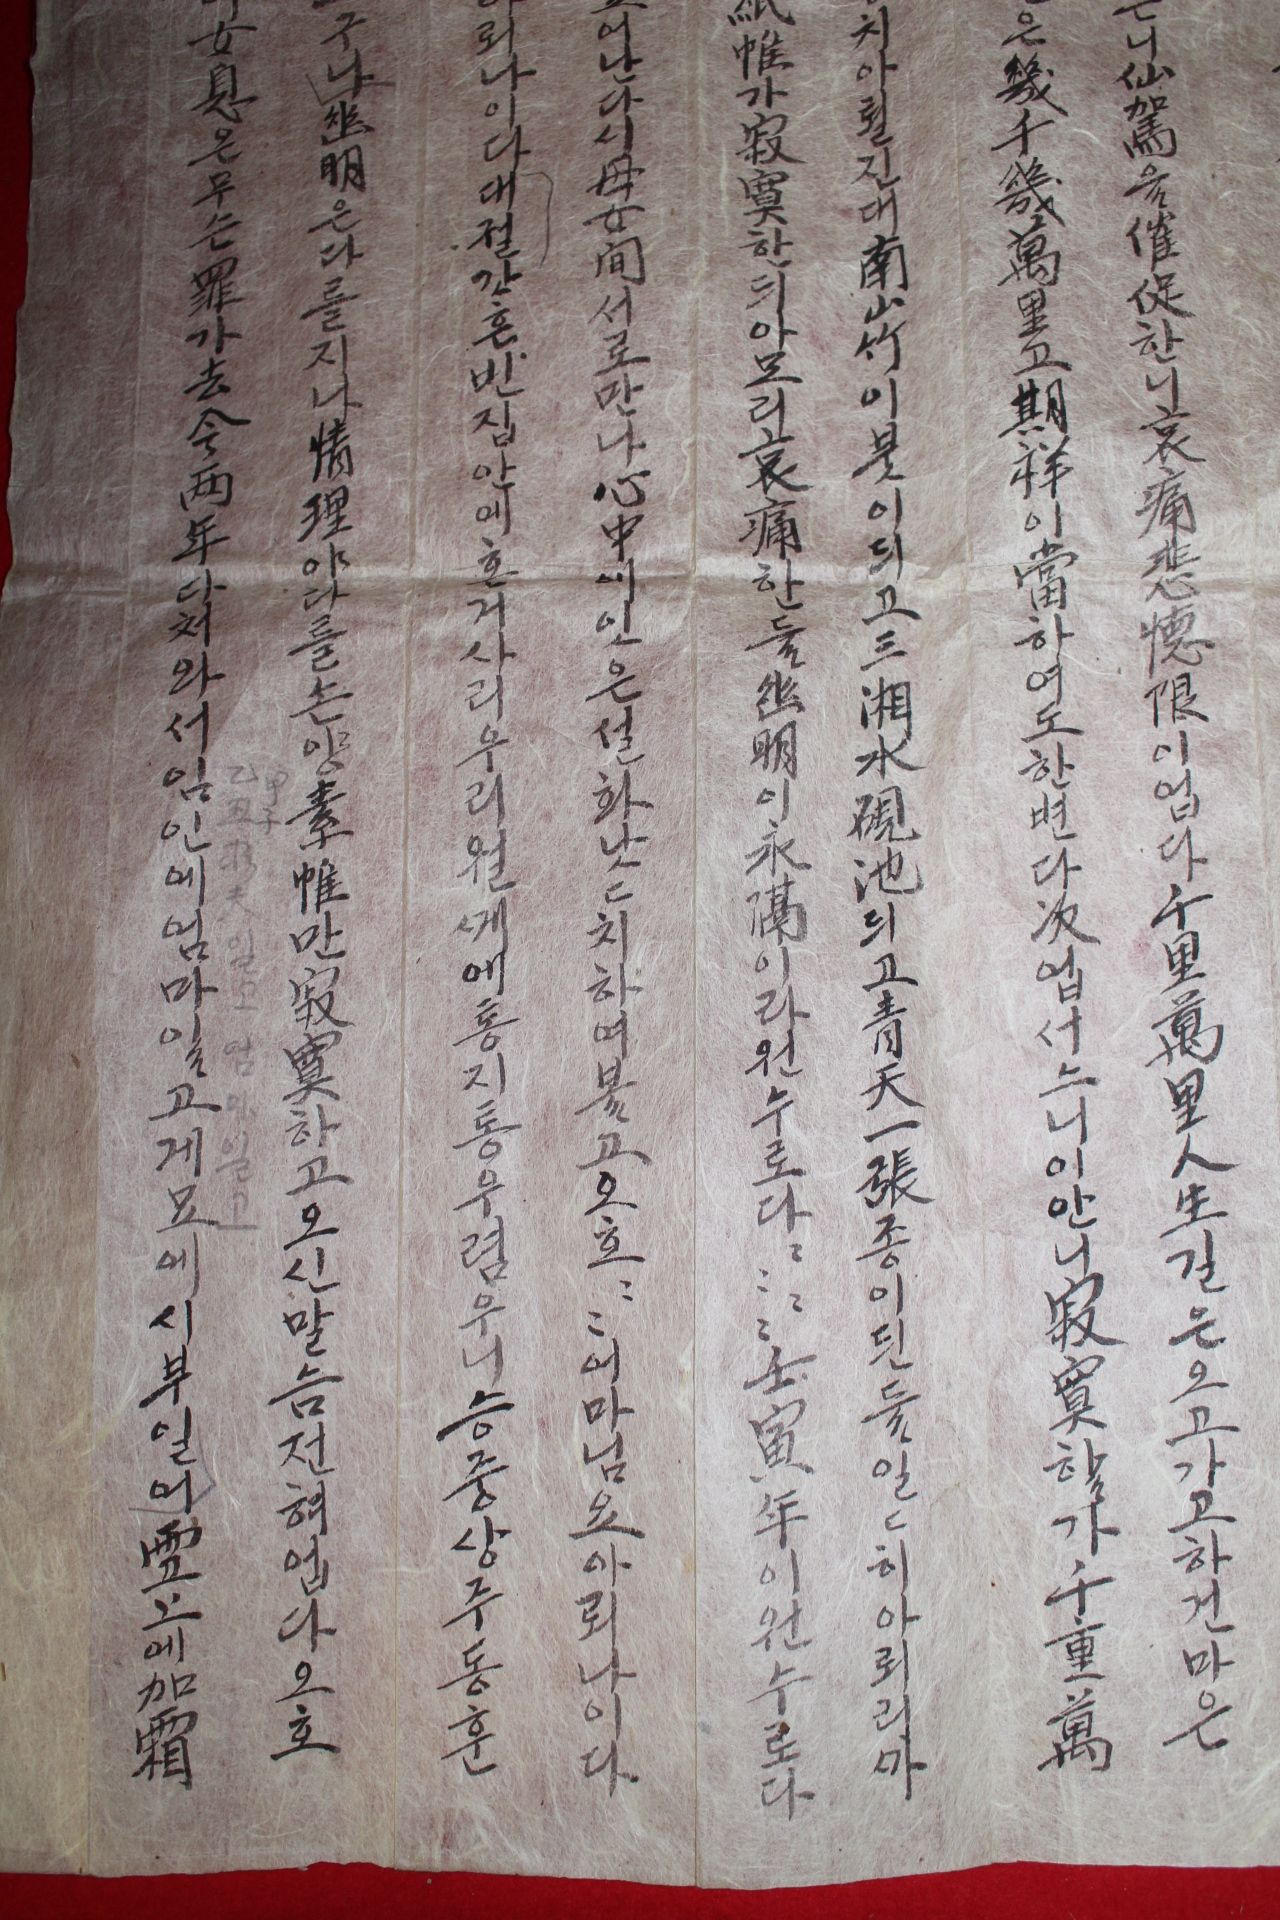 은니仙駕을催促한니哀痛悲憶限이업다千里萬里人生길은오고가고하건마은
은幾千幾萬里고期祥이當하여도한번다次업서느니이안니寂寞할가千重萬
치아뢸진대南山竹이붓이되고三湘水硯池되고靑天一張종이된들일ᄃ히아뢰리마
紙帷가寂寞한듸아모리哀痛한들幽明이永隔이라원수로다ᄃᄃᄃ壬寅年이원수로다
어난다시母女間서로만나心中에잇은설화낫ᄃ치하며불고오호ᄃᄃ어마님요아뢰나이다
뢰나이다대절간흔빈집안에흔거사리우리원게애통지통우렴우니승중상주동훈
구나幽明은다를지나情理야다를손양素帷만寂寞하고오신말슴전혀업다오호
女息은무슨罪가去今兩年다쳐와서임인에엄마일고게묘에시부일어雪上에加霜
甲子
乙丑 일고 엄마 일고